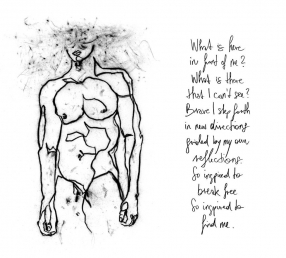 What is here
in front of me?
What is there
that I can't see?
Brave I step forth
in new directions
guided by my own
reflections
So inspired to
break free
So inspired to
find me.